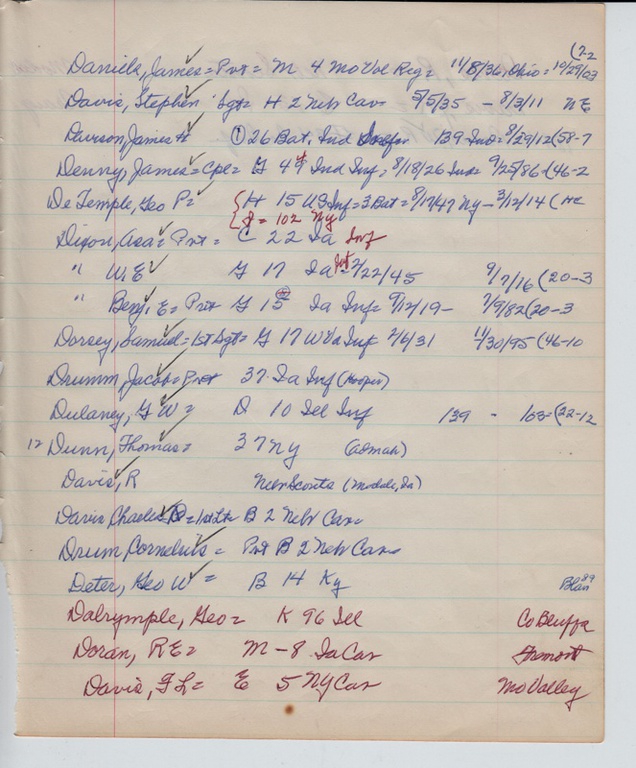 (7-2
Daniels, James = Pvt = M 4 Mo Vol Reg = 11/8/36, Ohio = 10/29/03
Davis, Stephen Sgt = H 2 Neb Cav 5/5/35 - 8/3/11 NE
Davison James H ① 26 Bat. Ind 139 Ind = 8/29/12 (58-7
Denny, James = Cpl = G 49 Ind Inf = 8/18/26 Ind = 9/25/86 (46-2
De Temple, Geo P = { H 15 US Inf = 3 Bat = 8/17/47 Ny - 3/12/14 (HC
{ = 102 Ny
Dixon, Asa = Pvt = C 22 Ia Inf
" W.E G 17 Ia Inf = 2/22/45 9/7/16 (20-3
" Benj. E = Pvt G 15 Ia Inf = 9/12/19 - 7/9/82 (20-3
Dorsey, Samuel = 1st Sgt = G 17 W Va Inf 2/6/31 11/30/95 (46-10
Drumm, Jacob = Pvt 37 Ia Inf (Hooper)
Dulaney, G W = D 10 Ill Inf 139 - 163 = (22-12
12 Dunn, Thomas = 37 Ny (Admah)
Davis, R Neb Scouts (Modale, Ia)
Davis Charles = 1st Lt = B 2 Neb Cav =
Drum Cornelius = Pvt B 2 Neb Cav =
Deter, Geo W = B 14 Ky Blair 89
Dalrymple, Geo = K 96 Ill Co Bluffs
Doran, R E = M - 8 Ia Cav Fremont
Davis, F L = E 5 NY Cav Mo Valley